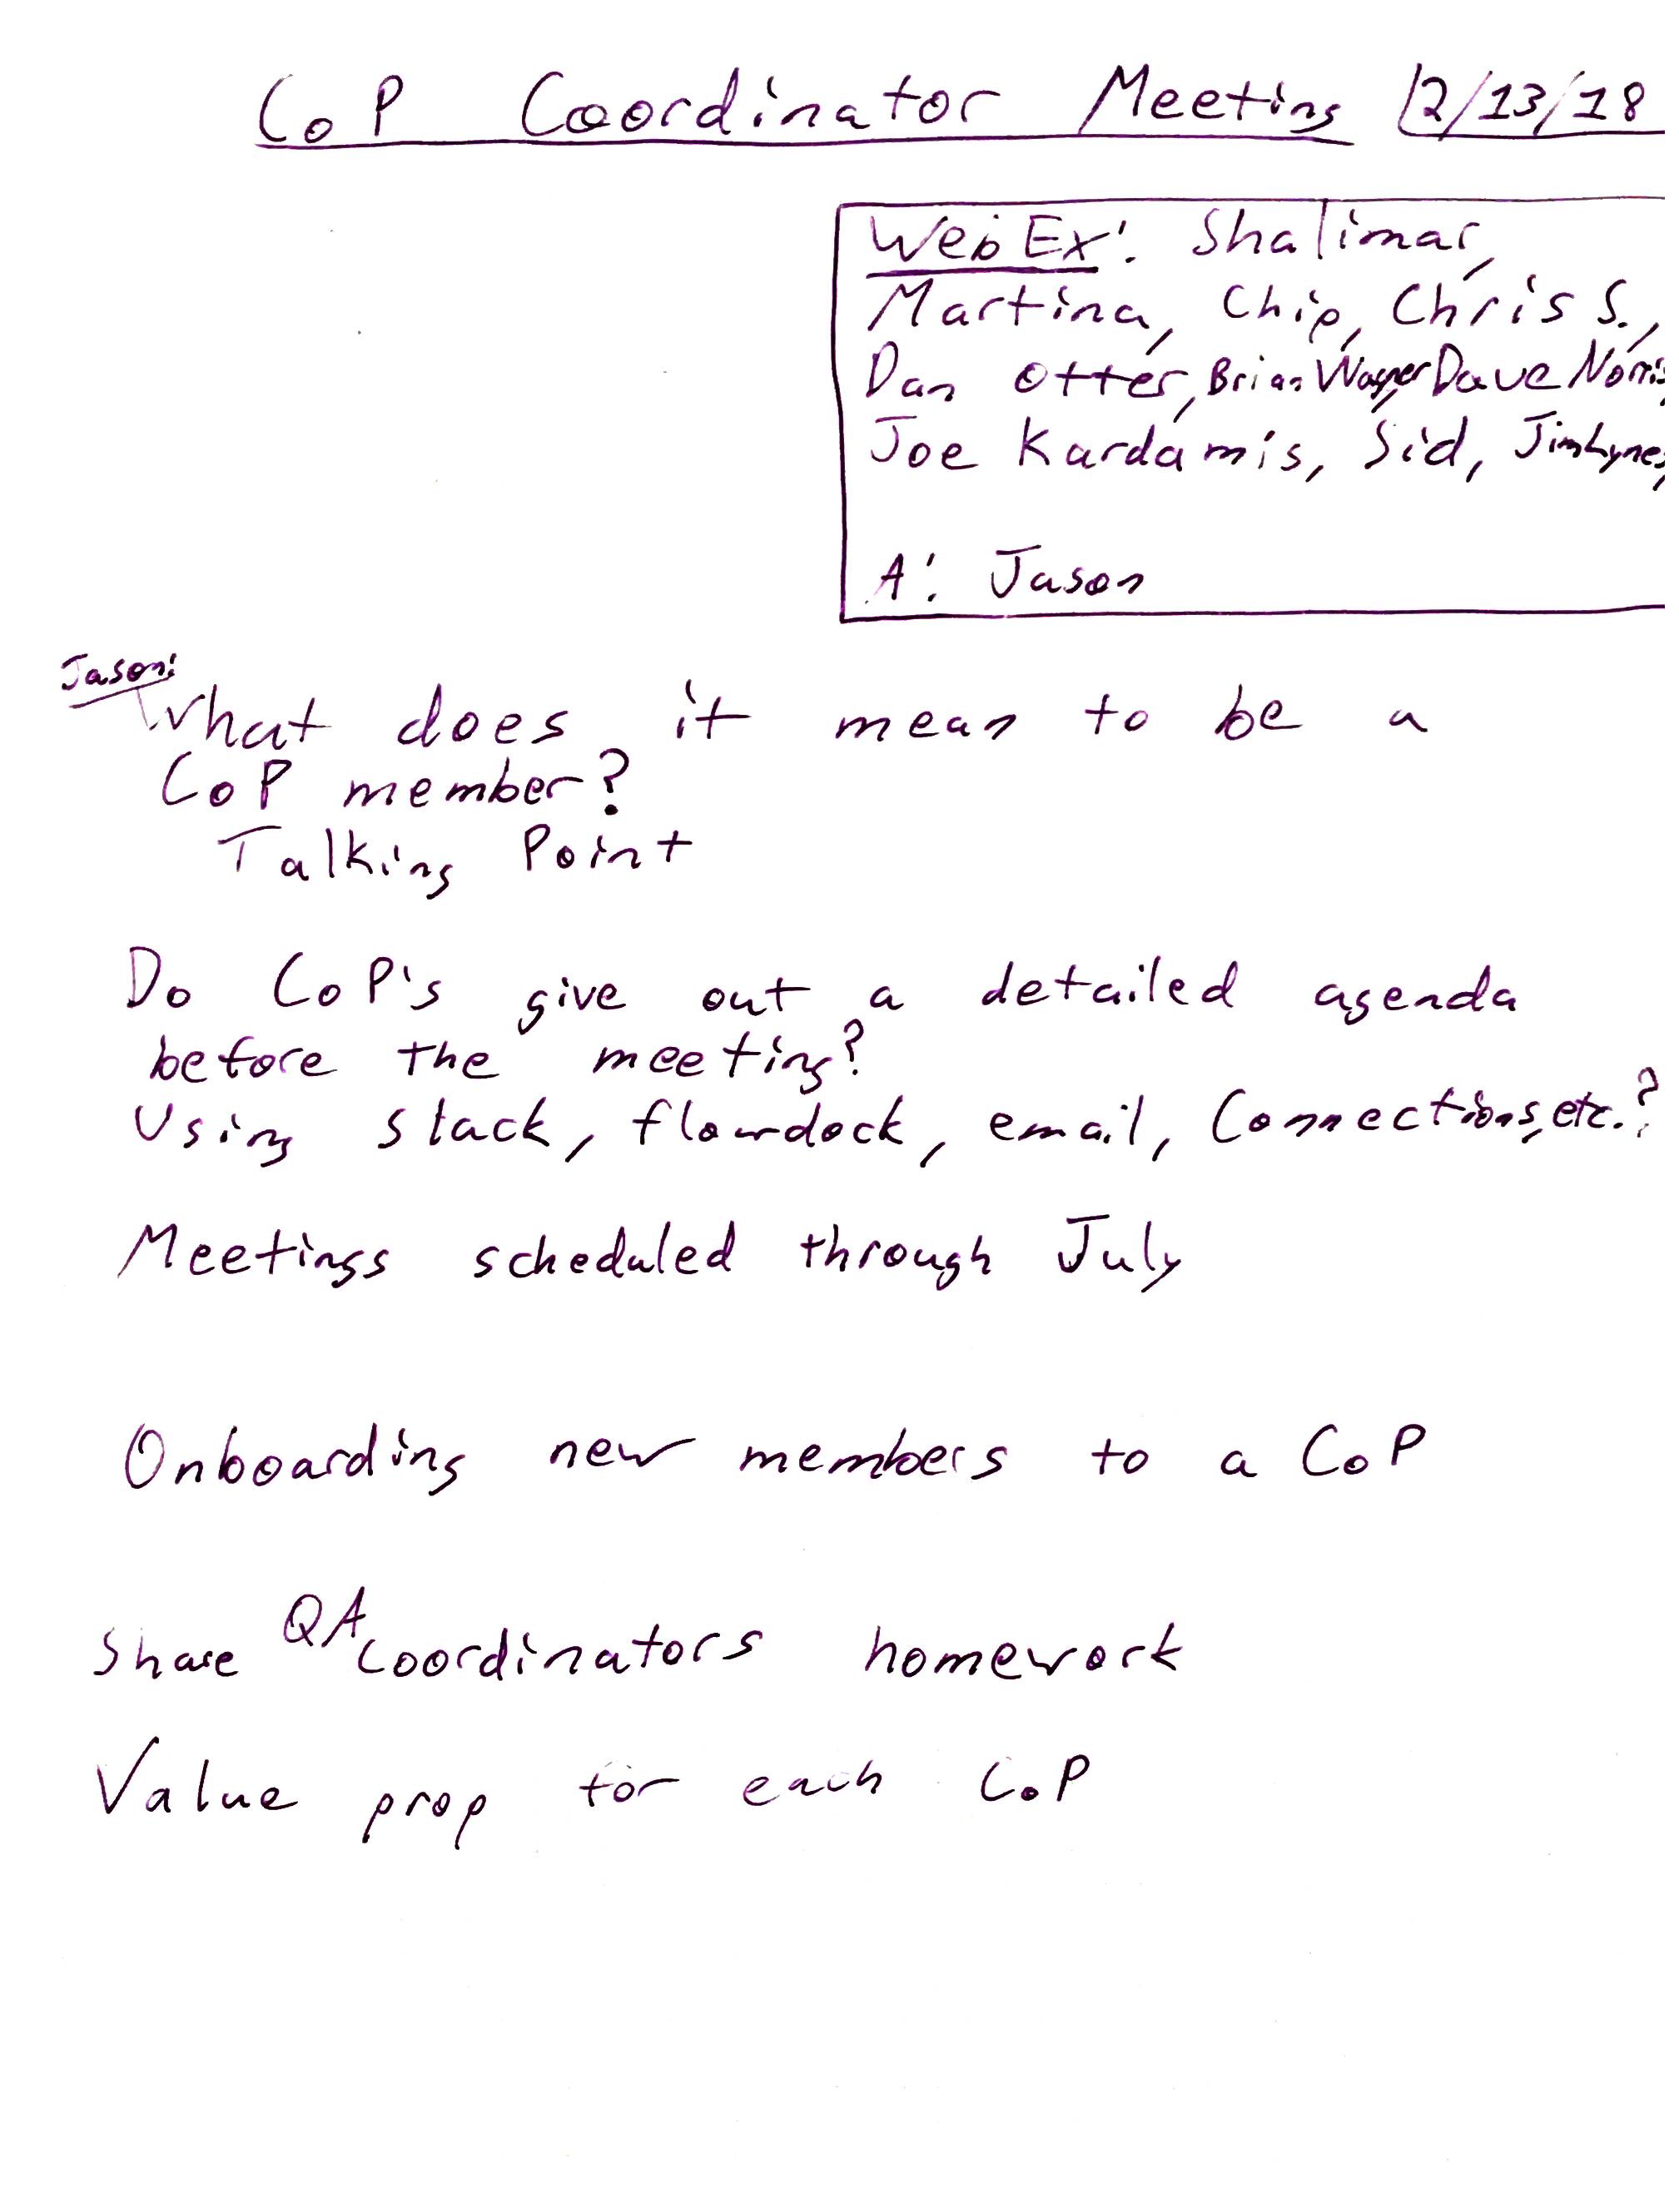 CoP Coordinator Meeting 12/13/18
WebEx: Shalimar,
Martina, Chip, Chris S.,
Dan Otter, Brian Wagner, Dave Norris,
Joe Kardamis, Sid, Jim Lynes,
A: Jason
Jason:
What does it mean to be a
CoP member?
Talking Point
Do CoP's give out a detailed agenda
before the meeting?
Using slack, flowdock, email, Connections, etc.?
Meetings scheduled through July
Onboarding new members to a CoP
Share QA Coordinators homework
Value prop for each CoP